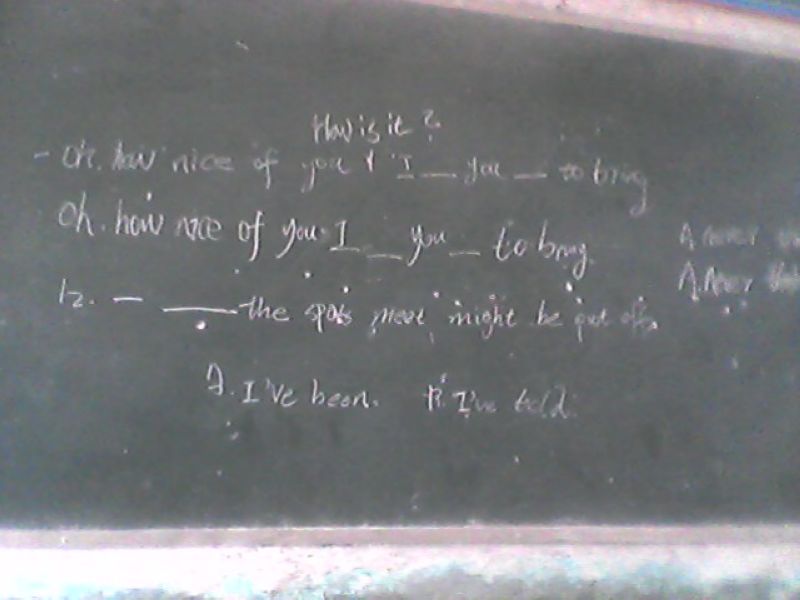 How is it?
- Oh. how nice of you I __ you __ to bring
Oh. how nice of you. I __ you __ to bring.
A. never
A. never
12. — ____ the sports meet might be put off.
A. I've been. B. I've told.